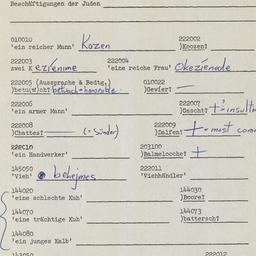 Beschäftigungen der Juden
010010 222002
'ein reicher Mann' Kozen )Koozen?
222003 222004
zwei Kezienime 'eine reiche Frau' Okezienode
222005 (Aussprache & Bedtg.) 010022
)betu(w)cht? betuuch=honorable )Gewier? —
222006 222007
'ein armer Mann' )Gasch? += insult
222008 222009
)Chattes? — (= Sünder) )Dalfen? += most com
222010 203100
'ein Handwerker' )Balmelooche? +
145050 222011
'Vieh' behejmes 'Viehhändler'
144020 144030
'eine schlechte Kuh' )Boore?
144070 144073
'eine trächtige Kuh' )battersch?
144080
'ein junges Kalb'
222012